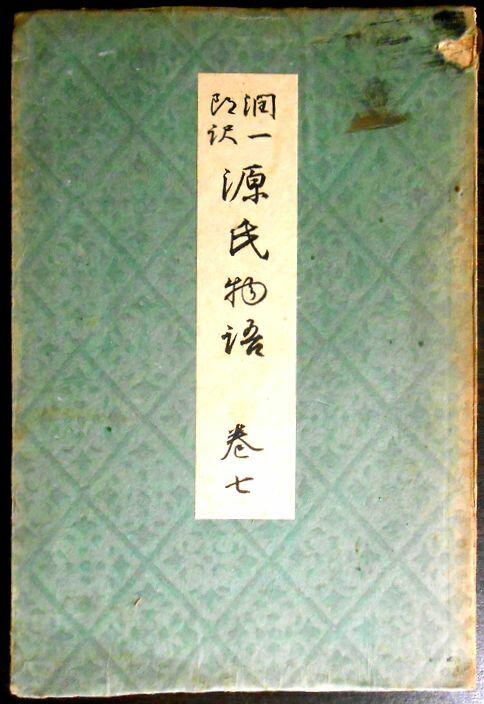 潤一郎訳
源氏物語 巻七